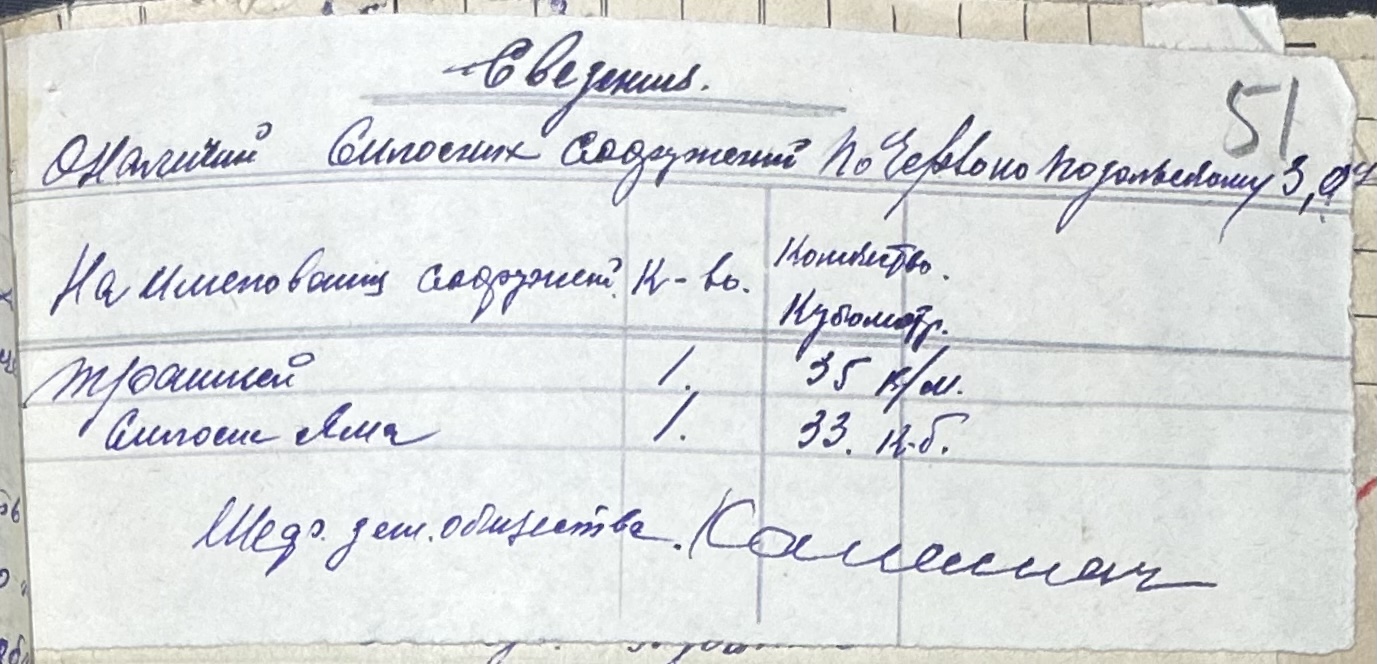 Сведения.
51
О Наличий Силосних Сооружений по Червоно Подольскому З, О
На именования сооружен. К-во. Количество.
Кубометр.
Траншей 1. 35 к/м.
Силосн Яма 1. 33. к-б.
зем. общества.